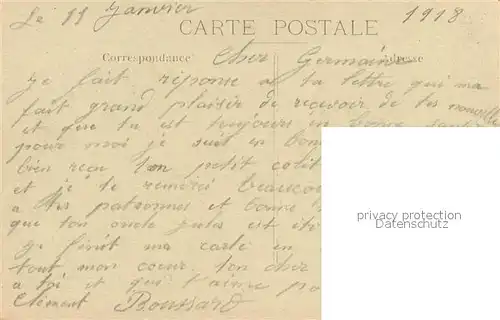 Le 11 Janvier 1918
CARTE POSTALE
Correspondance Adresse
Cher Germaine
Je fait réponse a ta lettre qui ma
fait grand plaisir de recevoir de tes nouvelle
et que tu est toujours en bonne santé
pour moi je suit en bonne
bien reçu ton petit colit
et je te remerci beaucou
a tes patronnes et bonne
que ton oncle jules est
je finit ma carte en
tout mon coeur ton cher
a toi et qui t'aime po
Clément Boussard
privacy protection
Datenschutz